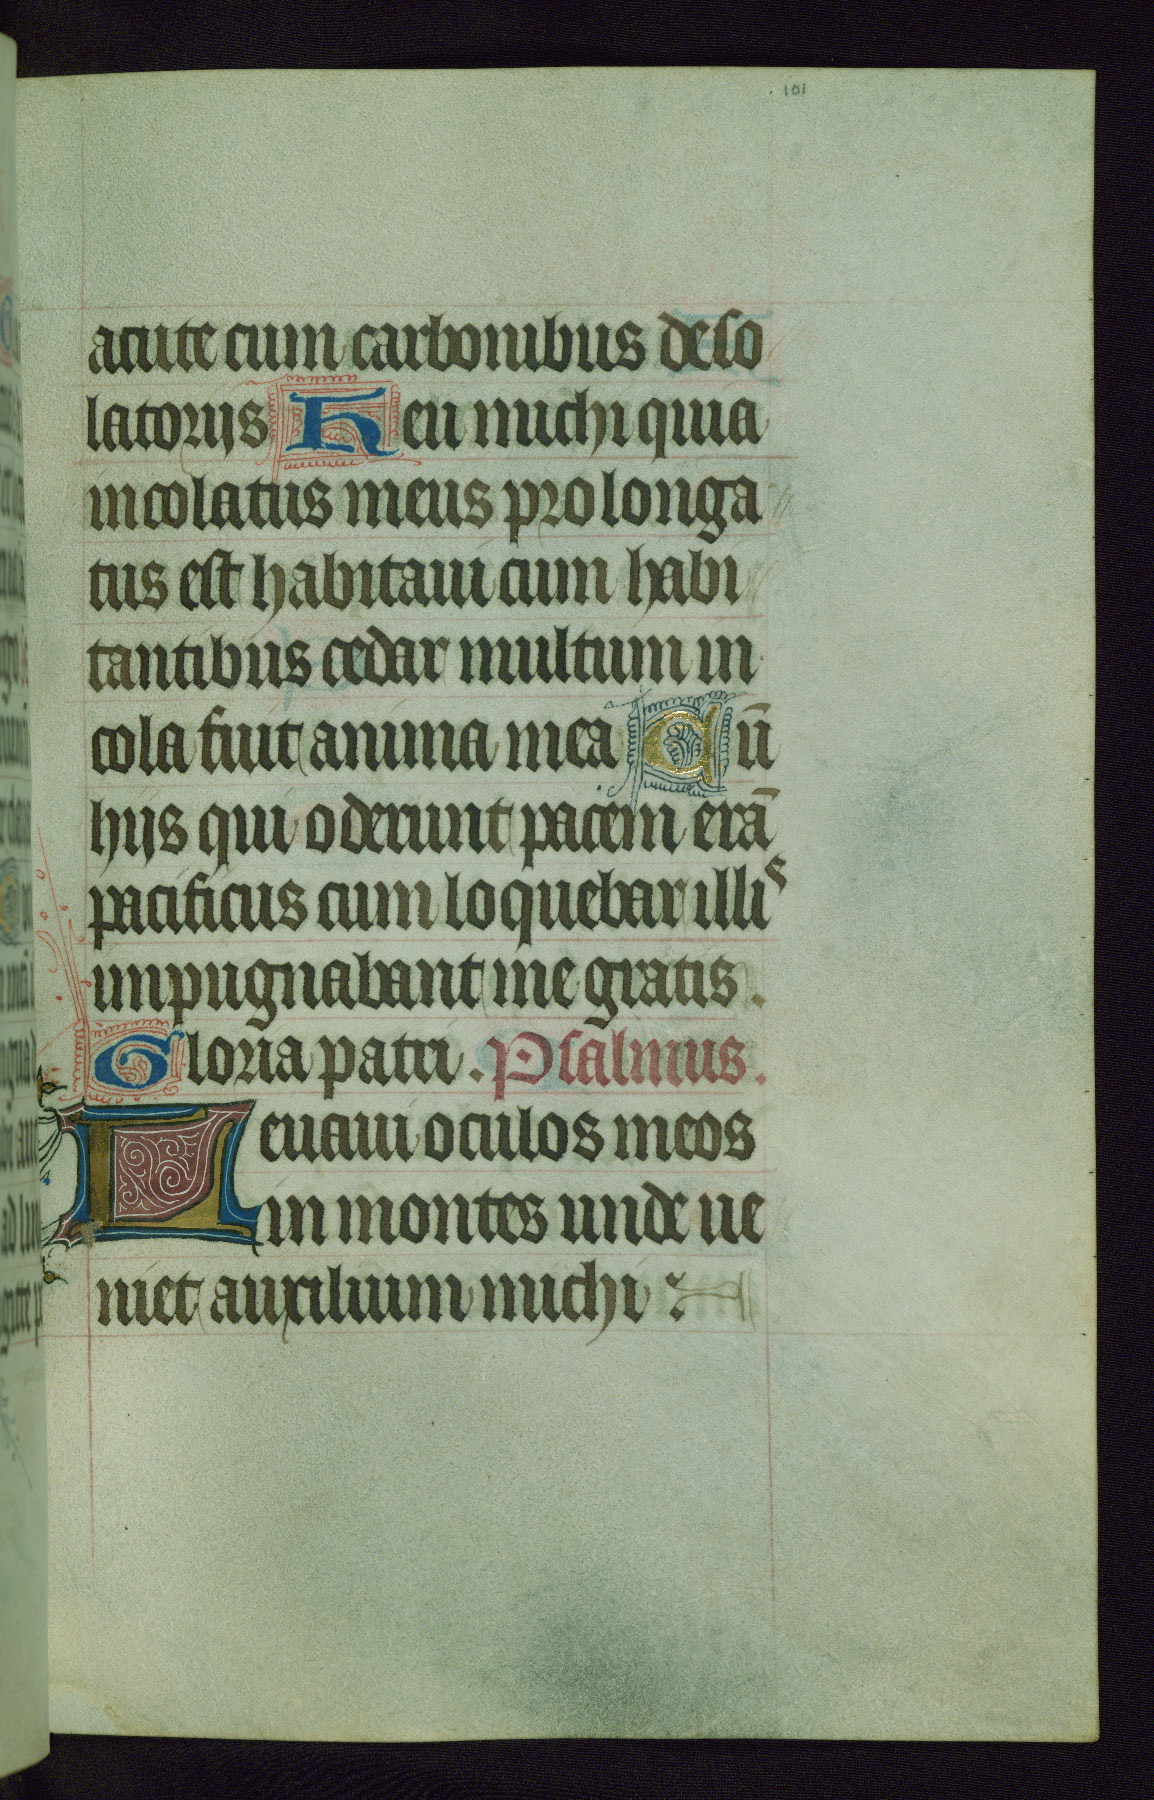 101
acute cum carbonibus deso
latorijs Heu michi quia
incolatus meus prolonga
tus est habitaui cum habi
tantibus cedar multum in
cola fuit anima mea Cū
hijs qui oderunt pacem erā
pacificus cum loquebar illis
inpugnabant me gratis.
Gloria patri. Psalmus.
Leuaui oculos meos
in montes unde ue
niet auxilium michi